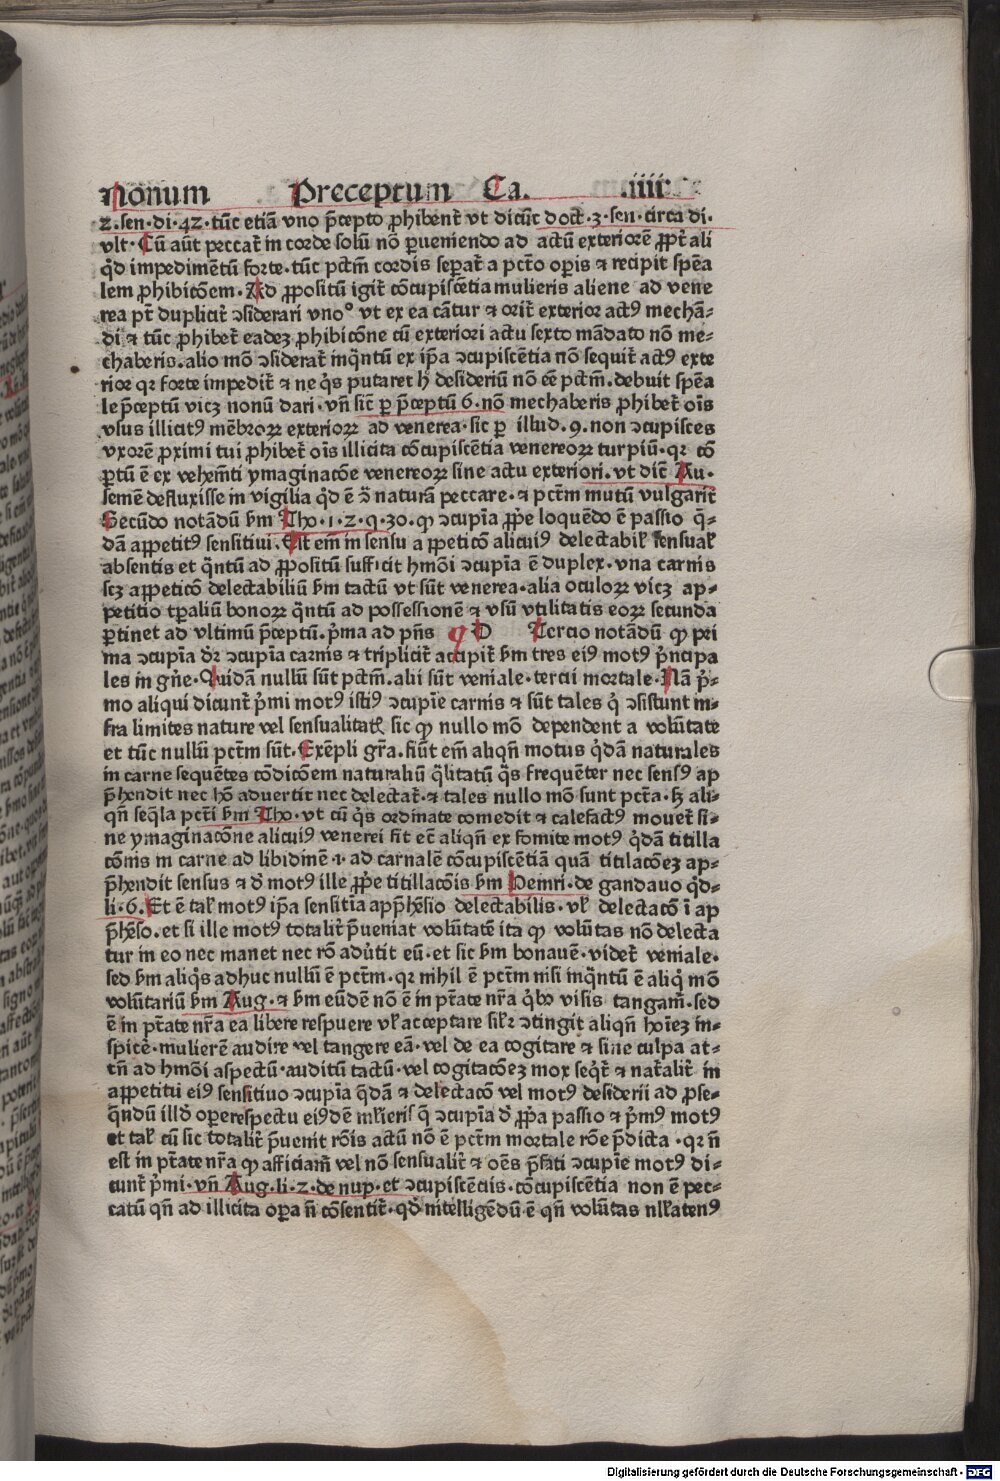 Nonum Preceptum Ca. .iiii.
2.sen.di.42.tūc etiā vno p̄cepto ꝓhibenť vt dicūt doct.3.sen.circa di.
vlt.Cū aūt peccať in corde solū nō ꝑueniendo ad actū exteriorē ꝓpť ali
qd̄ impedimētū forte.tūc pctm̄ cordis sepať a pctō oꝑis ⁊ recipit spēa
lem ꝓhibitōem.Ad ꝓpositū igiť cōcupiscētia mulieris aliene ad vene
rea pt̄ dupliciť ꝯsiderari vno° vt ex ea cāntur ⁊ oriť exterior actꝰ mechā-
di ⁊ tūc ꝓhibeť eadeꝫ ꝓhibicōne cū exteriori actu sexto mādato nō me-
chaberis.alio mō ꝯsiderať inq̄ntū ex ip̄a ꝯcupiscētia nō sequiť actꝰ exte
rior qꝛ forte impediť ⁊ ne q̄s putaret h̄ desideriū nō eē pctm̄.debuit spēa
le p̄ceptū vicꝫ nonū dari.vn̄ sic̄ ꝑ p̄ceptū 6.nō mechaberis ꝓhibeť oīs
vsus illicitꝰ mēbroꝝ exterioꝝ ad venerea.sic ꝑ illud.9.non ꝯcupisces
vxorē ꝓximi tui ꝓhibeť oīs illicita cōcupiscētia venereoꝝ turpiū.qꝛ cō
ꝑtū ē ex vehem̄ti ymaginacōe venereoꝝ sine actu exteriori.vt dic̄ Au.
semē defluxisse in vigilia qd̄ ē ꝯ̄ naturā peccare.⁊ pctm̄ mutū vulgariť
Secūdo notādū ẜm Tho.1.2.q.30.ꝙ ꝯcupīa ꝓpe loquēdo ē passio q̄-
dā appetitꝰ sensitiui.Est em̄ in sensu appeticō alicuiꝰ delectabił sensuał
absentis et q̄ntū ad ꝓpositū sufficit hmōi ꝯcupīa ē duplex.vna carnis
scꝫ appeticō delectabiliū ẜm tactū vt sūt venerea.alia oculoꝝ vicꝫ ap-
petitio tꝑaliū bonoꝝ q̄ntū ad possessionē ⁊ vsū vtilitatis eoꝝ secunda
ꝑtinet ad vltimū p̄ceptū.p̄ma ad pn̄s D Tercio notādū ꝙ pri
ma ꝯcupīa dr̄ ꝯcupīa carnis ⁊ tripliciť accipiť ẜm tres eiꝰ motꝰ p̄ncipa
les in gn̄e.Quidā nullū sūt pctm̄.alii sūt veniale.tercii mortale.Nā p̄-
mo aliqui dicunť p̄mi motꝰ istiꝰ ꝯcupīe carnis ⁊ sūt tales q̇ ꝯsistunt in-
fra limites nature vel sensualitatꝭ sic ꝙ nullo mō dependent a volūtate
et tūc nullū pctm̄ sūt.Exēpli gr̄a.fiūt em̄ aliqn̄ motus q̄dā naturales
in carne sequētes cōdicōem naturaliū q̄litatū q̄s frequēter nec sensꝰ ap
p̄hendit nec hō aduertit nec delectať.⁊ tales nullo mō sunt pctā.sꝫ ali-
qn̄ seq̄la pcti ẜm Tho.vt cū q̄s ordinate comedit ⁊ calefactꝰ moueť si-
ne ymaginacōne alicuiꝰ venerei fit etē aliqn̄ ex fomite motꝰ q̄dā titilla
cōnis in carne ad libidinē.i.ad carnalē cōcupiscētiā quā titilacōeꝫ ap-
p̄hendit sensus ⁊ ð motꝰ ille ꝓpe titillacōis ẜm Henri.de gandauo qd̄-
li.6.Et ē tał motꝰ ip̄a sensitīa app̄hēsio delectabilis.vł delectacō ī ap
p̄hēso.et si ille motꝰ totaliť p̄ueniat volūtatē ita ꝙ volūtas nō delecta
tur in eo nec manet nec rō adu̇tit eū.et sic ẜm bonauē.videť veniale.
sed ẜm aliq̄s adhuc nullū ē pctm̄.qꝛ nihil ē pctm̄ nisi inq̄ntū ē aliq̇ mō
volūtariū ẜm Aug.⁊ ẜm eūdē nō ē in pt̄ate nr̄a q̄bꝰ visis tangam̄.sed
ē in pt̄ate nr̄a ea libere respuere vł acceptare siłr ꝯtingit aliqn̄ hoīeꝫ in-
spicē.mulierē audire vel tangere eā.vel de ea cogitare ⁊ sine culpa at-
tn̄ ad hmōi aspectū.auditū tactū.vel cogitacōeꝫ mox seqť ⁊ natałiť in
appetitu eiꝰ sensitiuo ꝯcupīa q̄dā ⁊ delectacō vel motꝰ desiderii ad ꝓse-
q̄ndū illd̄ oꝑe respectu eiꝰdē mlieris q̄ ꝯcupīa ð ꝓpa passio ⁊ p̄mꝰ motꝰ
et tał cū sic totaliť p̄uenit rōis actū nō ē pctm̄ mortale rōe p̄dicta.qꝛ n̄
est in pt̄ate nr̄a ꝙ afficiam̄ vel nō sensualiť ⁊ oēs p̄fati ꝯcupīe motꝰ di-
cunť p̄mi.vn̄ Aug.li.2.de nup.et ꝯcupiscēciis.cōcupiscētia non ē pec-
catū qn̄ ad illicita oꝑa n̄ cōsentiť.qd̄ intelligēdū ē qn̄ volūtas nłłatenꝰ
Digitalisierung gefördert durch die Deutsche Forschungsgemeinschaft - DFG